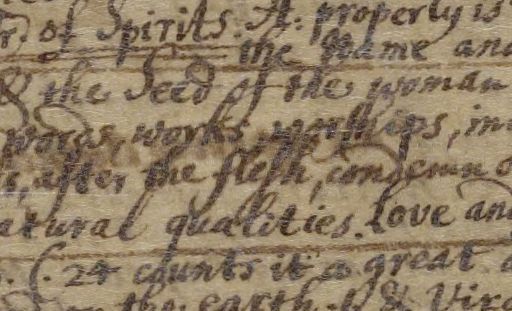 of Spirits. A: property is
the Name and
& the Seed of the woman
words, works, worships, in
after the flesh, condemn
atural qualities. Love and
24 counts it a great
the earth. & Vir